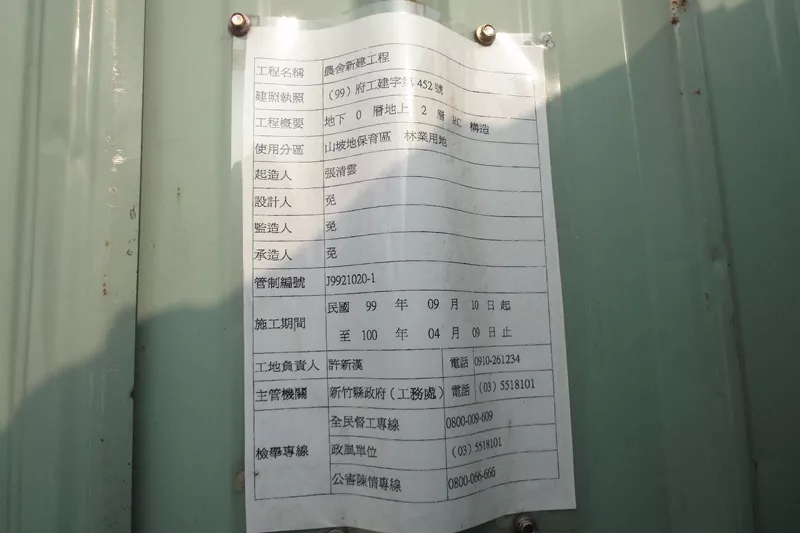 工程名稱 農舍新建工程
建照執照 (99)府工建字第 452 號
工程概要 地下 0 層地上 2 層 RC 構造
使用分區 山坡地保育區 林業用地
起造人 張清雲
設計人 免
監造人 免
承造人 免
管制編號 J9921020-1
施工期間 民國 99 年 09 月 10 日起
至 100 年 04 月 09 日止
工地負責人 許新漢 電話 0910-261234
主管機關 新竹縣政府(工務處) 電話 (03)5518101
檢舉專線 全民督工專線 0800-009-609
政風單位 (03)5518101
公害陳情專線 0800-066-666